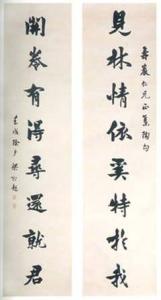 仁兄正集陶句
見林情依奚特於我
開卷有得尋還就君
戌除夕 梁啟超